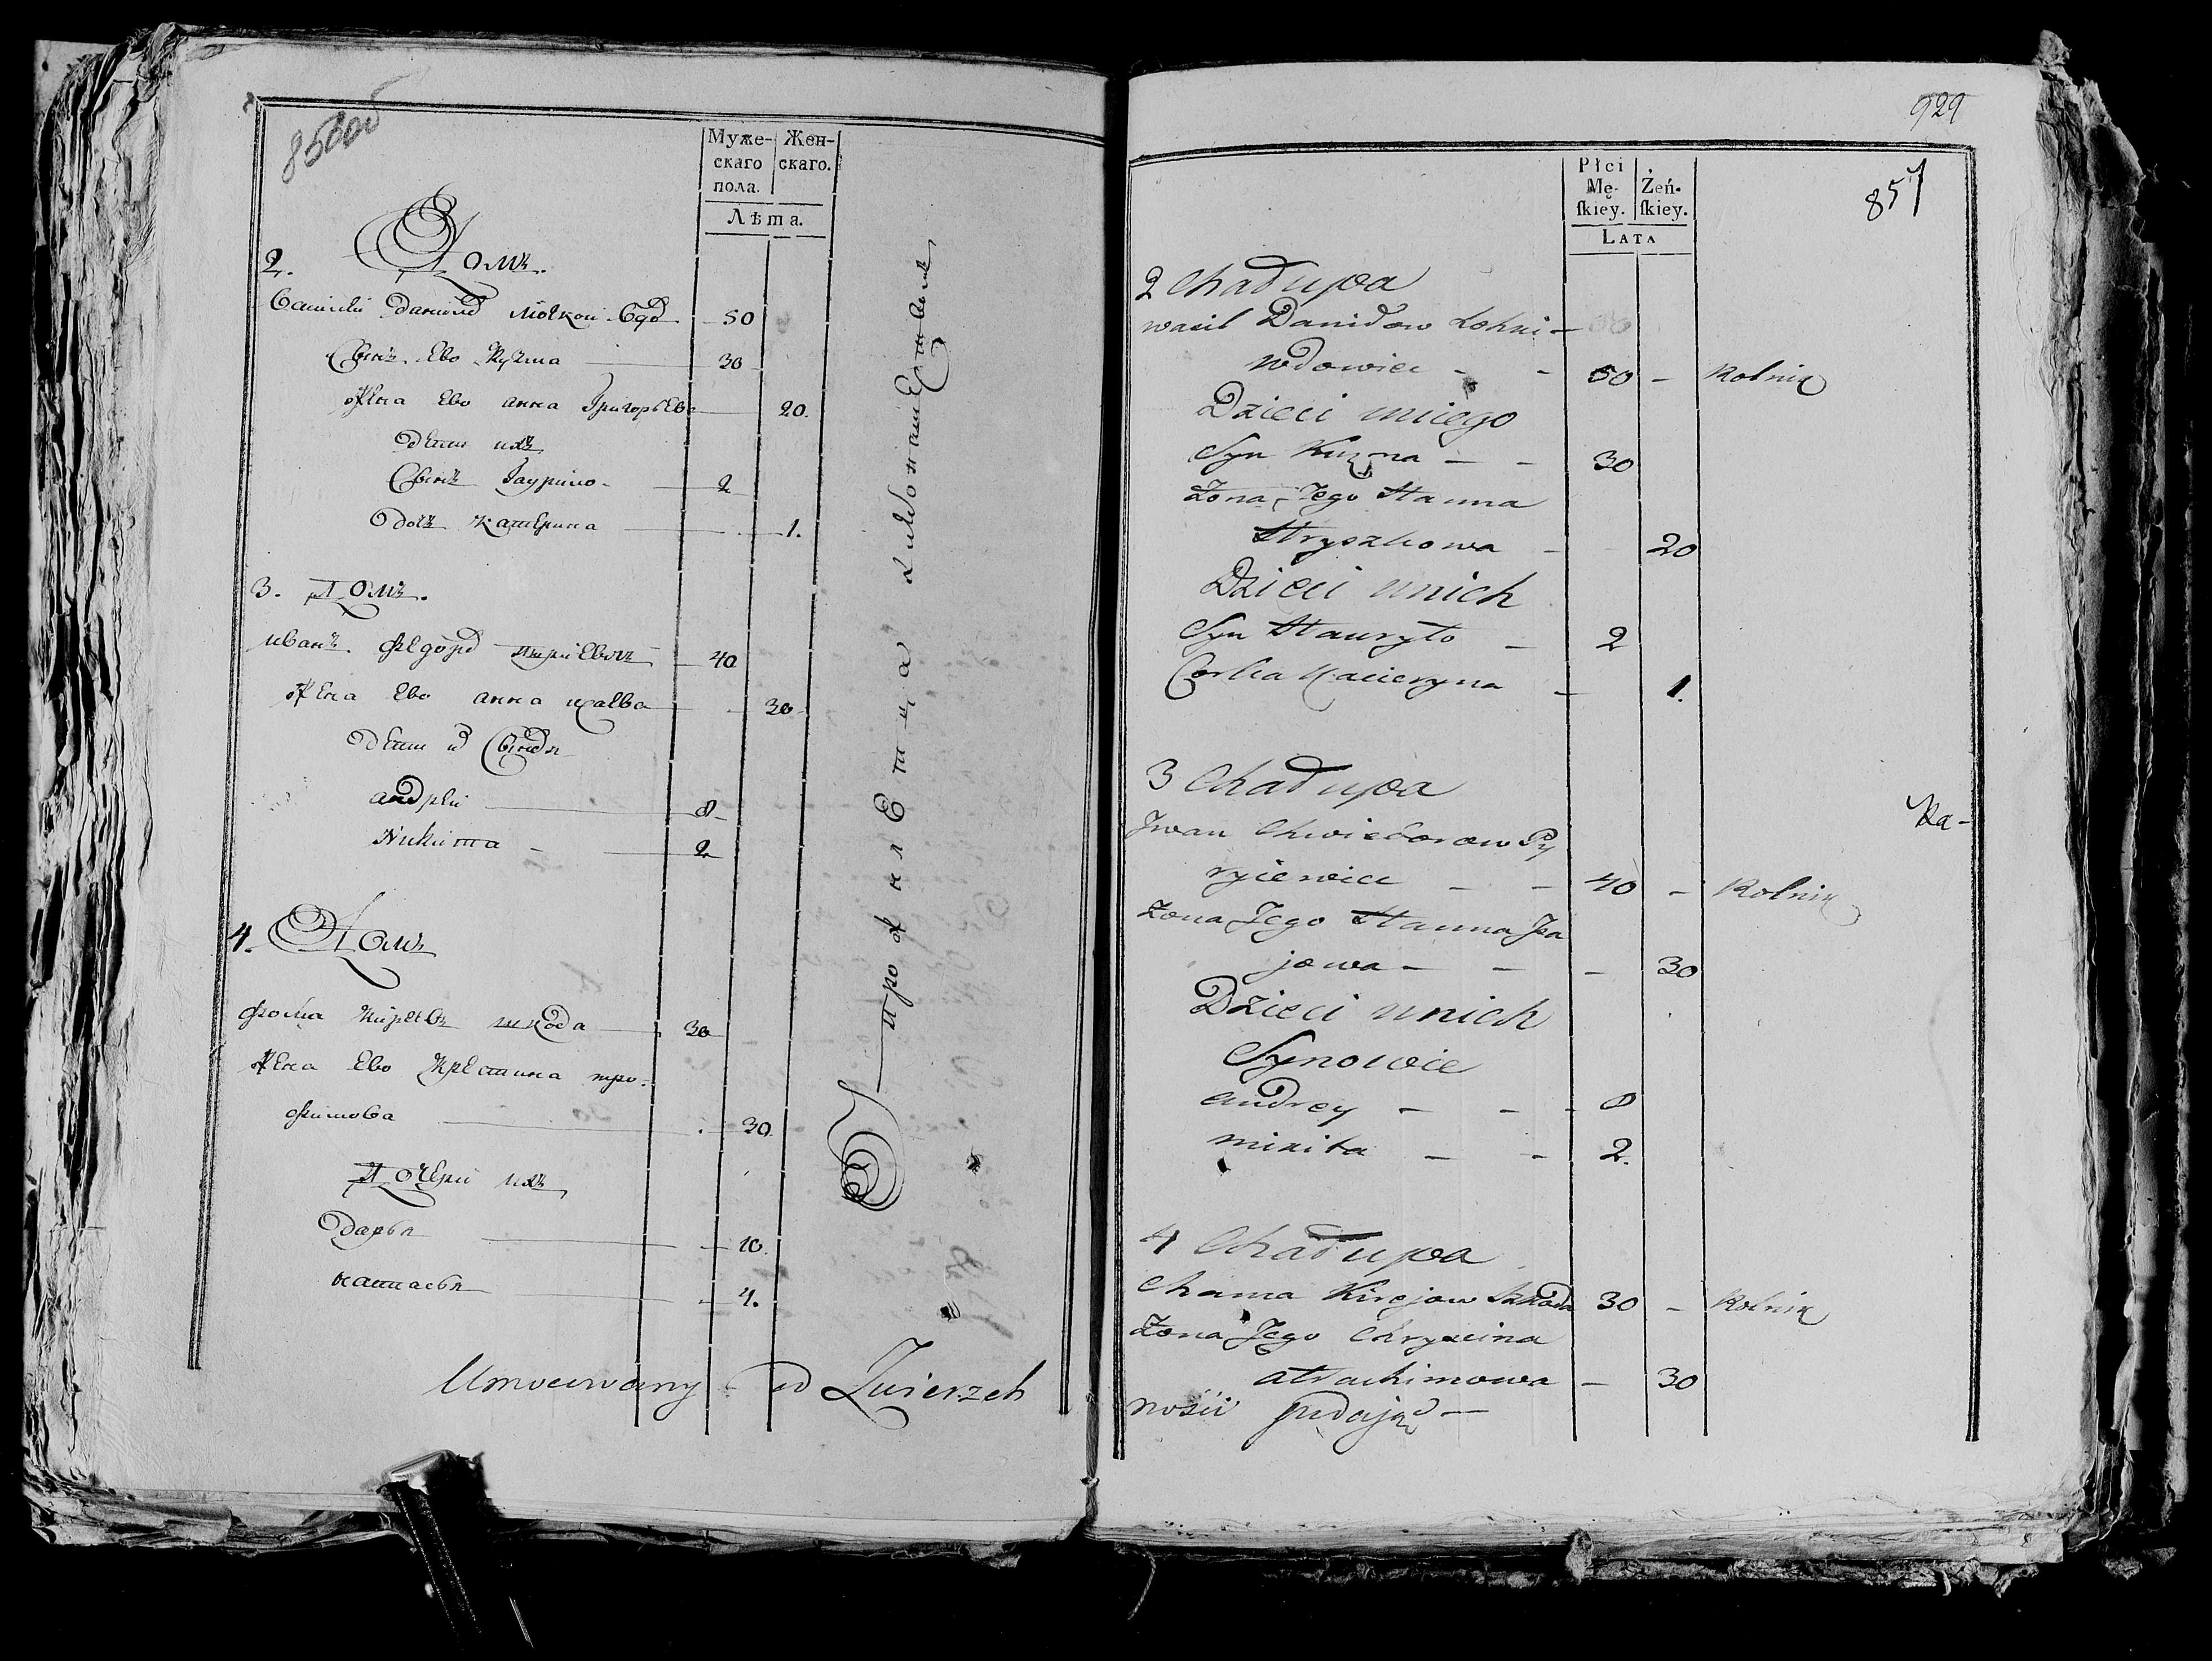 850 об
Муже-
скаго
пола.
Жен-
скаго.
Лѣта.
2. Домъ.
Василей Данилов 50
Сынъ Ево Кузма 30
Жена Ево анна Григорьева 20.
дети ихъ
Сынъ Гаурило 2
Дочь катерина 1.
3. Домъ.
иванъ Федоров 40
Жена Ево анна 30
дети их Сыновя
андрей 8
Никита 2
4. Домъ
Фома Киреев шкода 30
Жена Ево Крестина тро-
фимова 30.
Дочери ихъ
Дарья 10.
настасья 4.
Umocowany od Zwierzch
929
857
Płci
Mę-
ſkiey.
Żeń-
ſkiey.
LATA
2 Chałupa
wasil Daniłow
wdowiec - - 50 - Rolnik
Dzieci uniego
Syn Kuzma - - 30
Żona Jego Hanna
Hryszkowa - 20
Dzieci unich
Syn Hauryło - 2
Corka Kacieryna - 1.
3 Chałupa
Ka-
Jwan Chwiedorow Py
ryiewicz - - 40 - Rolnik
Żona Jego Hanna Jsa
jowa - - - 30
Dzieci unich
Synowie
andrey - - - 8
mikita - - 2.
4 Chałupa
Chama Kirejow Szkoda 30 - Rolnik
Żona Jego Chryscina
atrachimowa - 30
ności podaję -